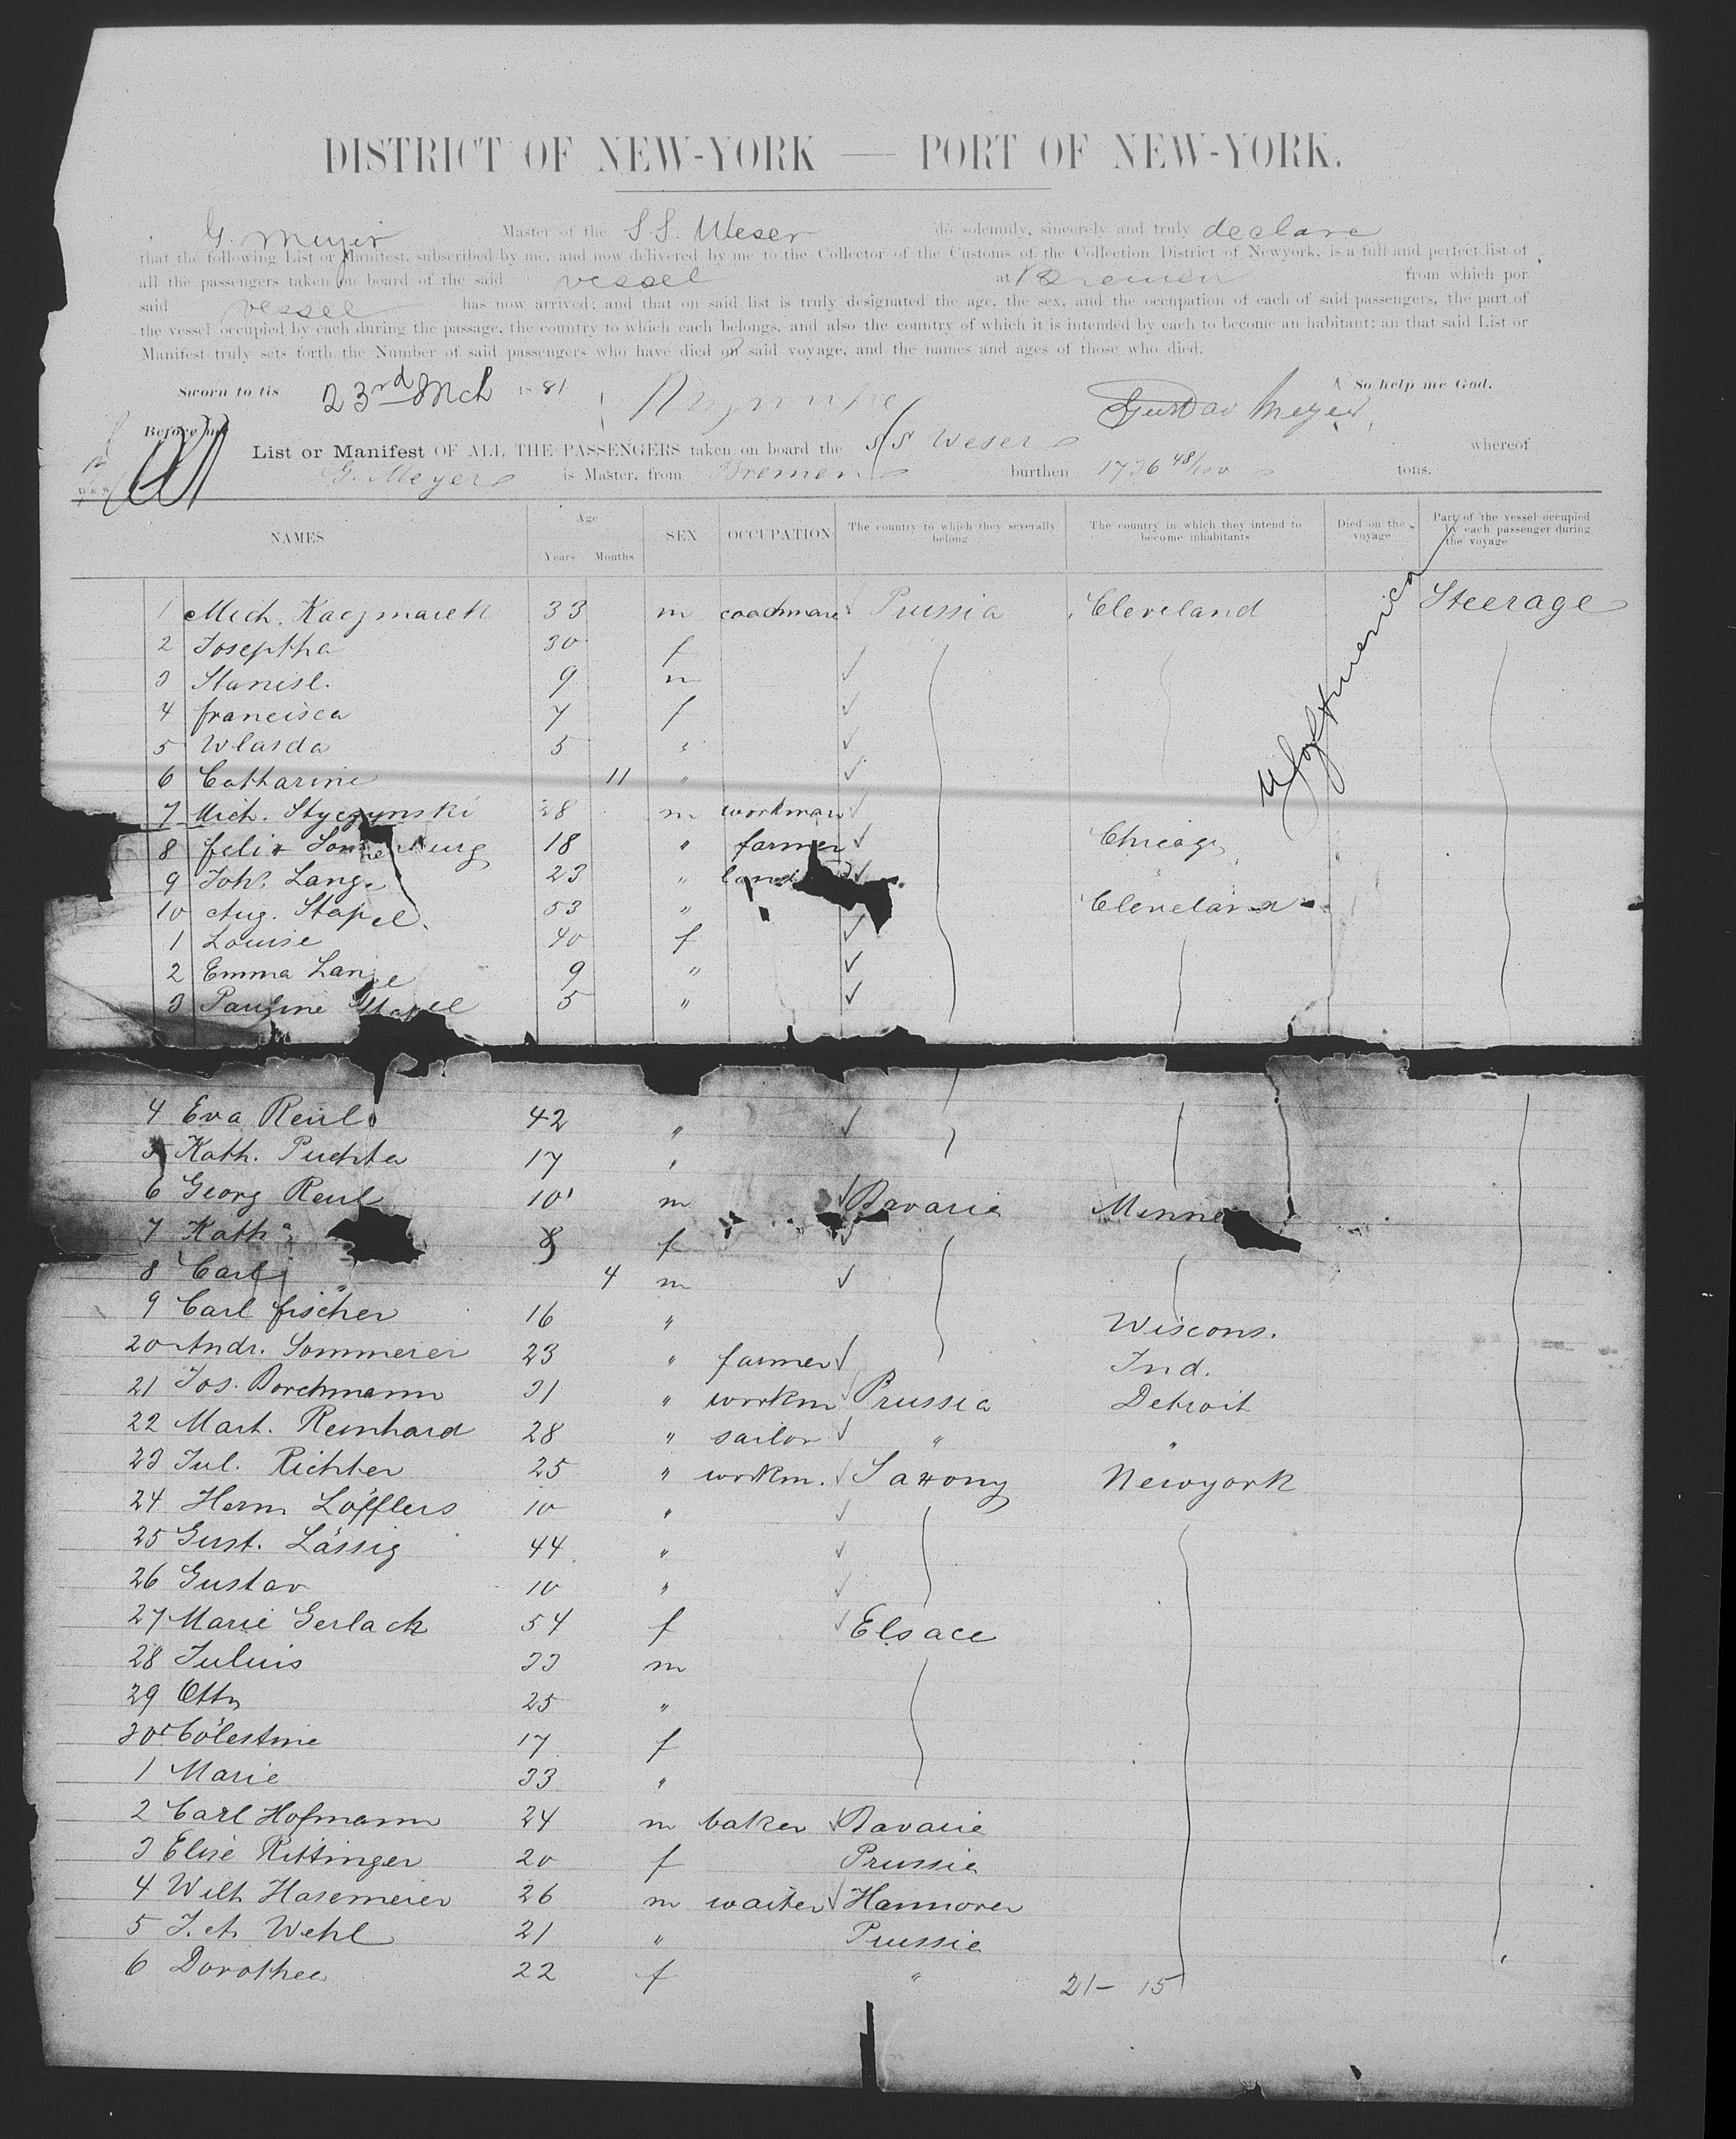 DISTRICT OF NEW-YORK — PORT OF NEW-YORK.
G. Meyer Master of the S.S. Weser do solemnly, sincerely and truly declare
that the following List or Manifest, subscribed by me, and now delivered by me to the Collector of the Customs of the Collection District of Newyork, is a full and perfect list of
all the passengers taken on board of the said vessel at Bremen from which por
said vessel has now arrived; and that on said list is truly designated the age, the sex, and the occupation of each of said passengers, the part of
the vessel occupied by each during the passage, the country to which each belongs, and also the country of which it is intended by each to become an habitant; an that said List or
Manifest truly sets forth the Number of said passengers who have died on said voyage, and the names and ages of those who died.
Sworn to tis 23rd Mch 1881 So help me God.
Gustav Meyer
Before me
List or Manifest OF ALL THE PASSENGERS taken on board the SS Weser whereof
G. Meyer is Master, from Bremen burthen 1736 48/100 tons.
NAMES Age Years Months SEX OCCUPATION The country to which they severally belong The country in which they intend to become inhabitants Died on the voyage Part of the vessel occupied by each passenger during the voyage
1 Mich. Kaczmarek 33 m coachman Prussia Cleveland Steerage
2 Joseptha 30 f
3 Stanisl. 9 m
4 francisca 7 f
5 Wlasda 5 "
6 Catharine 11 "
7 Mich. Styczynski 28 m workman
8 felix 18 " farmer Chicago
9 Joh. Lange 23 " "
10 Aug. Stapel 53 " Cleveland
1 Louise 40 f
2 Emma Lange 9 "
3 Pauline Stapel 5 "
U S of America
4 Eva Reul 42 "
5 Kath. Puchta 17 "
6 Georg Reul 10 m Bavaria Minne
7 Kath 8 f
8 Carl " 4 m
9 Carl fischer 16 " Wiscons.
20 Andr. Sommerer 23 " farmer Ind.
21 Jos. Borchmann 31 " workm Prussia Detroit
22 Mart. Reinhard 28 " sailor " "
23 Jul. Richter 25 " workm. Saxony Newyork
24 Herm Löfflers 10 "
25 Gust. Lässig 44 "
26 Gustav 10 "
27 Marie Gerlach 54 f Elsace
28 Julius 33 m
29 Otto 25 "
30 Cölestine 17 f
1 Marie 33 "
2 Carl Hofmann 24 m baker Bavaria
3 Elise Rittinger 20 f Prussia
4 Wilh Hasemeier 26 m waiter Hannover
5 J. A. Wehl 21 " Prussia
6 Dorothea 22 f "
21- 15